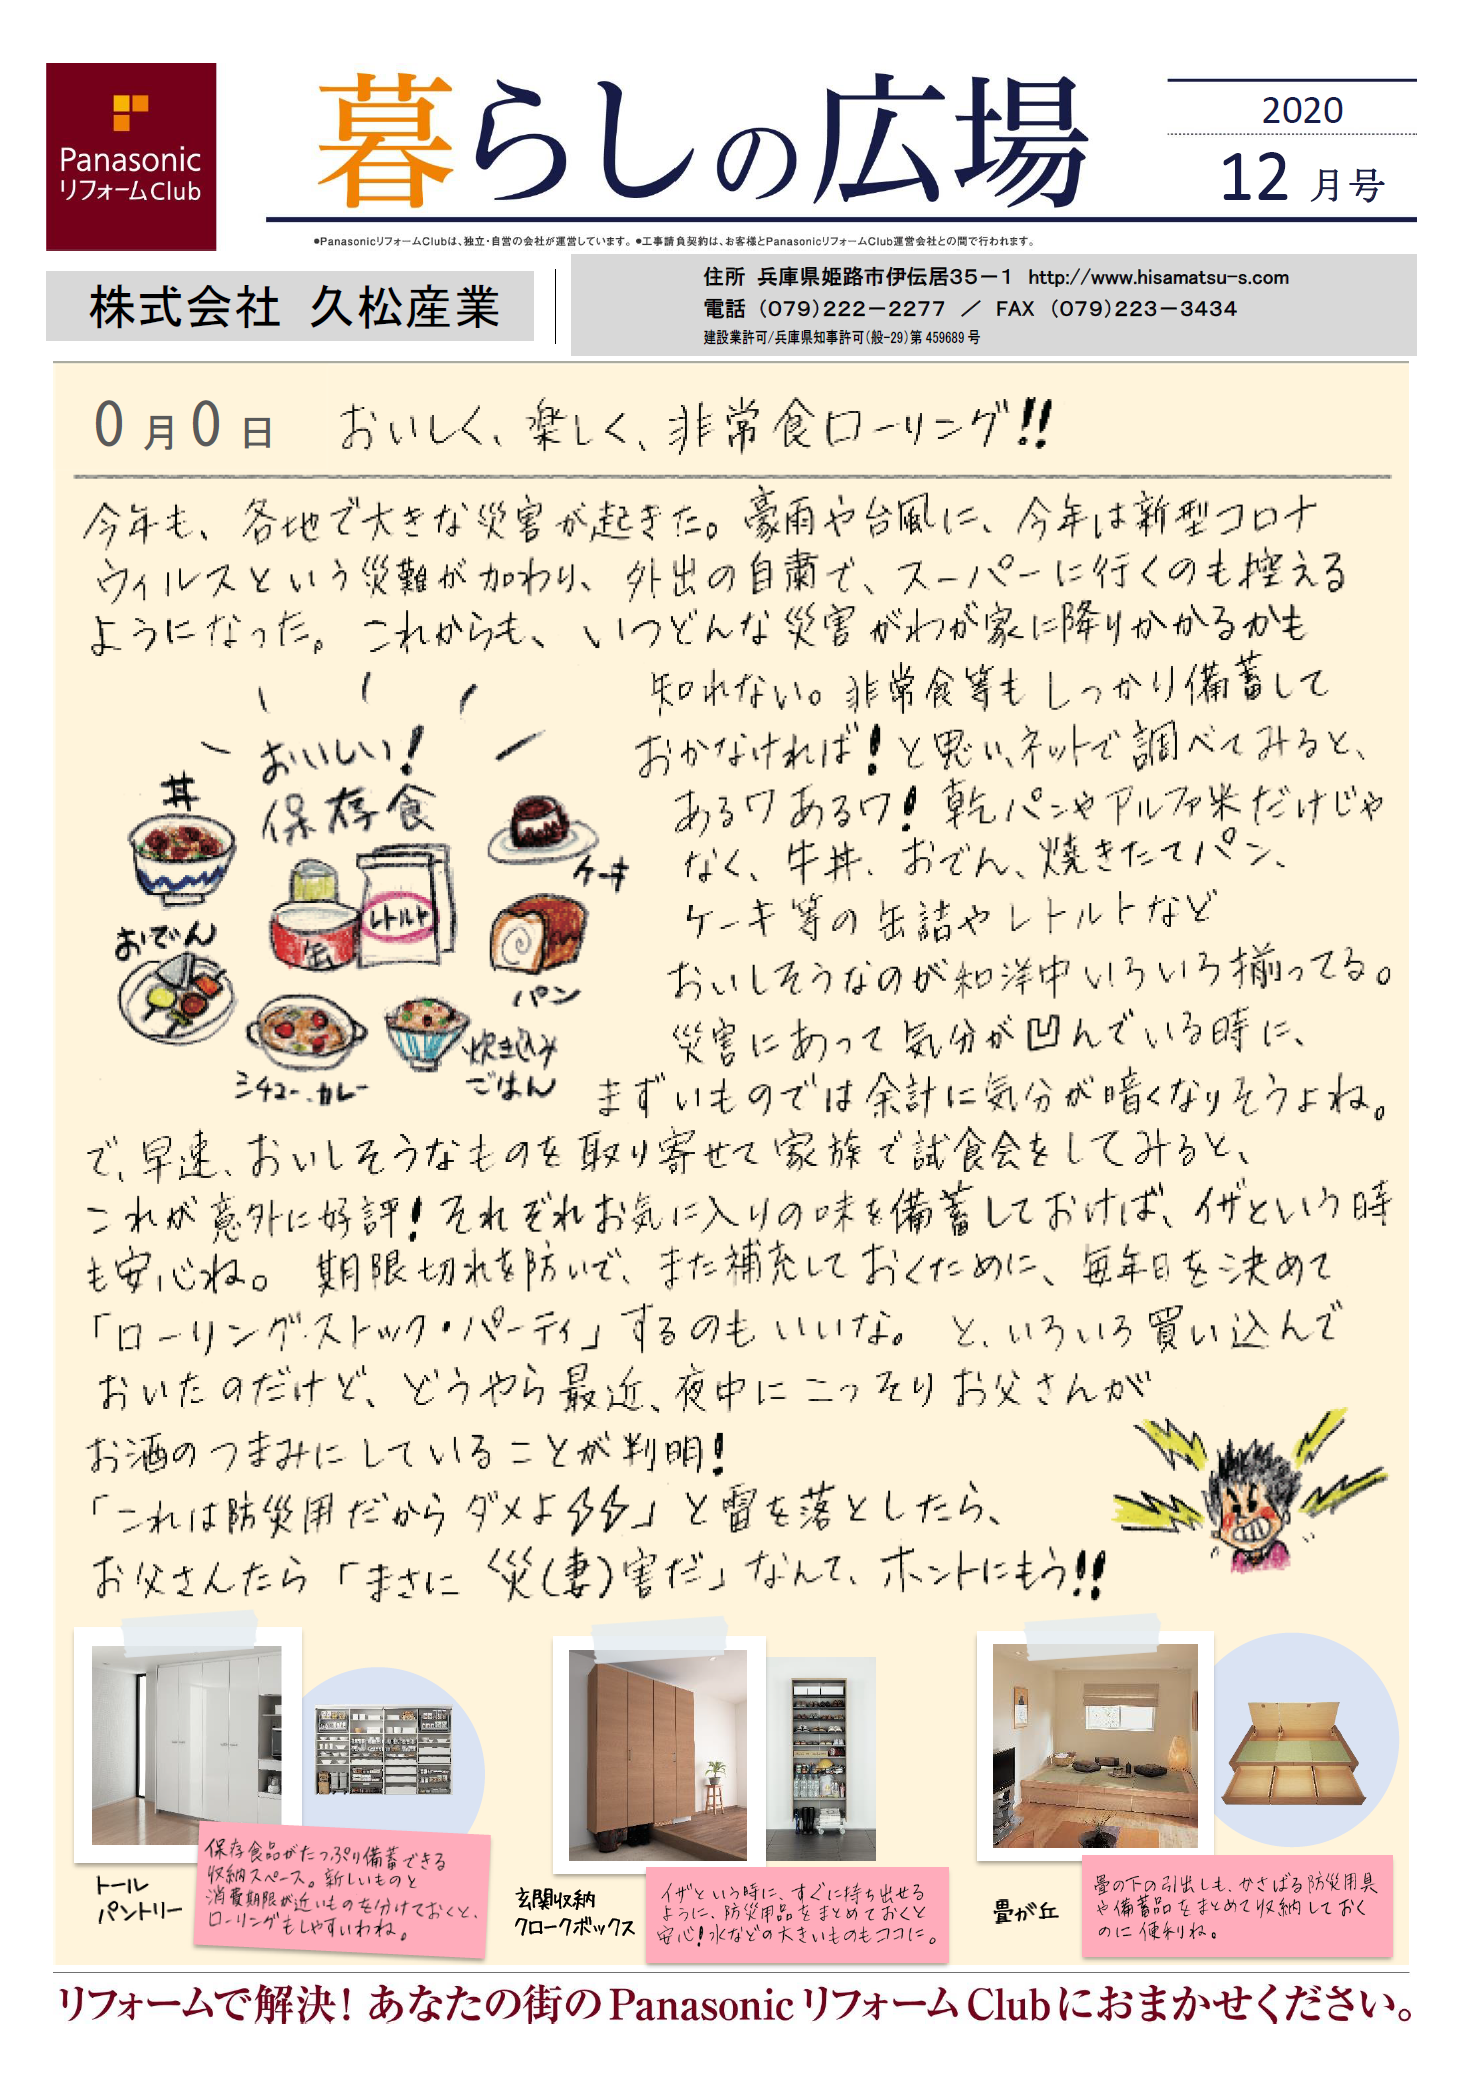 Panasonic
リフォームClub
暮らしの広場
2020
12 月号
●PanasonicリフォームClubは、独立・自営の会社が運営しています。 ●工事請負契約は、お客様とPanasonicリフォームClub運営会社との間で行われます。
株式会社 久松産業
住所 兵庫県姫路市伊伝居35－1 http://www.hisamatsu-s.com
電話 (079)222－2277 ／ FAX (079)223－3434
建設業許可/兵庫県知事許可(般-29)第 459689 号
0月0日 おいしく、楽しく、非常食ローリング!!
今年も、各地で大きな災害が起きた。豪雨や台風に、今年は新型コロナ
ウィルスという災難が加わり、外出の自粛で、スーパーに行くのも控える
ようになった。これからも、いつどんな災害がわが家に降りかかるかも
知れない。非常食等もしっかり備蓄して
おかなければ!と思い、ネットで調べてみると、
あるワあるワ!乾パンやアルファ米だけじゃ
なく、牛丼、おでん、焼きたてパン、
ケーキ等の缶詰やレトルトなど
おいしそうなのが和洋中いろいろ揃ってる。
災害にあって気分が凹んでいる時に、
まずいものでは余計に気分が暗くなりそうよね。
おいしい!
保存食
丼
ケーキ
レトルト
缶
おでん
パン
シチュー・カレー
炊き込み
ごはん
で、早速、おいしそうなものを取り寄せて家族で試食会をしてみると、
これが意外に好評!それぞれお気に入りの味を備蓄しておけば、イザという時
も安心ね。期限切れを防いで、また補充しておくために、毎年日を決めて
「ローリング・ストック・パーティ」するのもいいな。と、いろいろ買い込んで
おいたのだけど、どうやら最近、夜中にこっそりお父さんが
お酒のつまみにしていることが判明!
「これは防災用だからダメよ」と雷を落としたら、
お父さんたら「まさに災(妻)害だ」なんて、ホントにもう!!
トール
パントリー
保存食品がたっぷり備蓄できる
収納スペース。新しいものと
消費期限が近いものを分けておくと、
ローリングもしやすいわね。
玄関収納
クロークボックス
イザという時に、すぐに持ち出せる
ように、防災用品をまとめておくと
安心!水などの大きいものもココに。
畳が丘
畳の下の引出しも、かさばる防災用具
や備蓄品をまとめて収納しておく
のに便利ね。
リフォームで解決! あなたの街のPanasonicリフォームClubにおまかせください。